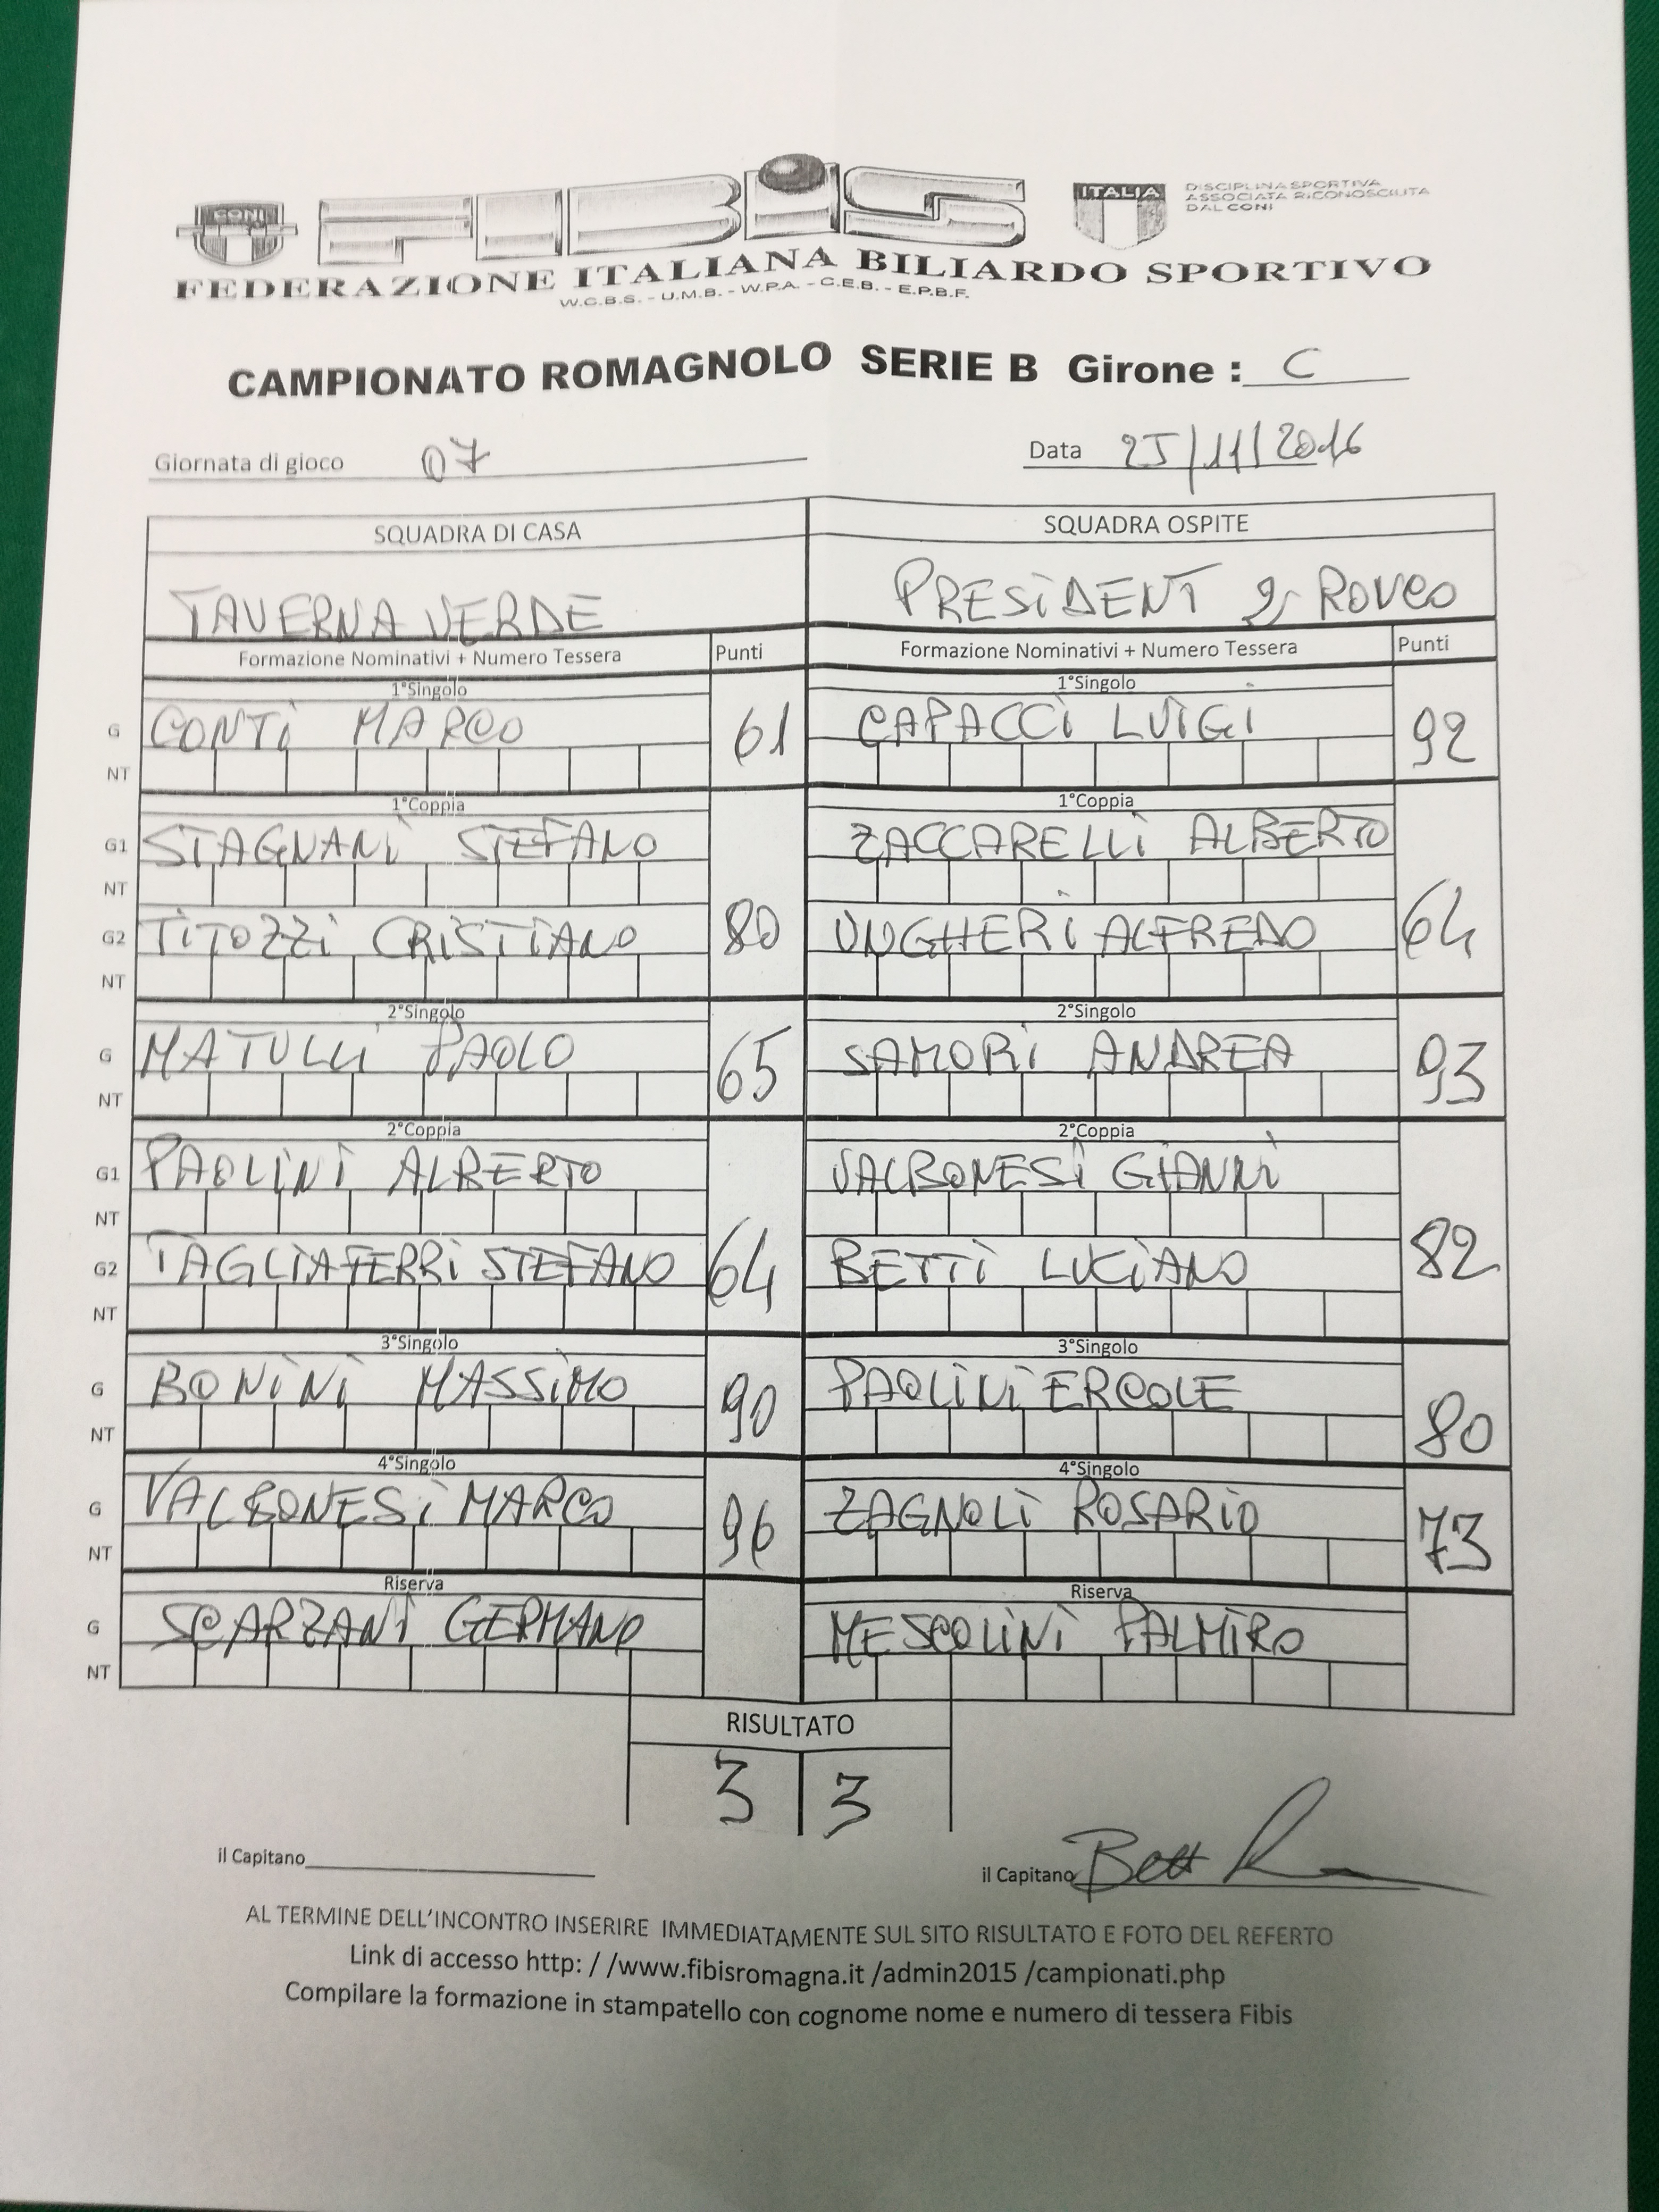 CONI FIBiS ITALIA DISCIPLINA SPORTIVA
ASSOCIATA RICONOSCIUTA
DAL CONI
FEDERAZIONE ITALIANA BILIARDO SPORTIVO
W.C.B.S. - U.M.B. - W.P.A. - C.E.B. - E.P.B.F.
CAMPIONATO ROMAGNOLO SERIE B Girone : C
Giornata di gioco 07 Data 25/11/2016
SQUADRA DI CASA SQUADRA OSPITE
TAVERNA VERDE PRESiDENT 2
Formazione Nominativi + Numero Tessera Punti Formazione Nominativi + Numero Tessera Punti
1°Singolo 1°Singolo
G CONTi MARCO 61 CAPACCi LUiGi 92
NT
1°Coppia 1°Coppia
G1 STAGNANi STEFANO ZACCARELLi ALBERTO
NT
G2 TiTOZZi CRiSTIANO 80 UNGHERi ALFREDO 64
NT
2°Singolo 2°Singolo
G MATULLi PAOLO 65 SAMORi ANDREA 93
NT
2°Coppia 2°Coppia
G1 PAOLiNi ALBERTO VALBONESi GIANNi
NT
G2 TAGLIAFERRi STEFANO 64 BETTi LUCiANO 82
NT
3°Singolo 3°Singolo
G BONiNi MASSiMO 90 PAOLiNi ERCOLE 80
NT
4°Singolo 4°Singolo
G VALBONESi MARCO 96 ZAGNOLi ROSARiO 73
NT
Riserva Riserva
G SCARZANi GERMANO MESCOLiNi PALMiRO
NT
RISULTATO
3 3
il Capitano il Capitano
AL TERMINE DELL'INCONTRO INSERIRE IMMEDIATAMENTE SUL SITO RISULTATO E FOTO DEL REFERTO
Link di accesso http: / /www.fibisromagna.it /admin2015 /campionati.php
Compilare la formazione in stampatello con cognome nome e numero di tessera Fibis